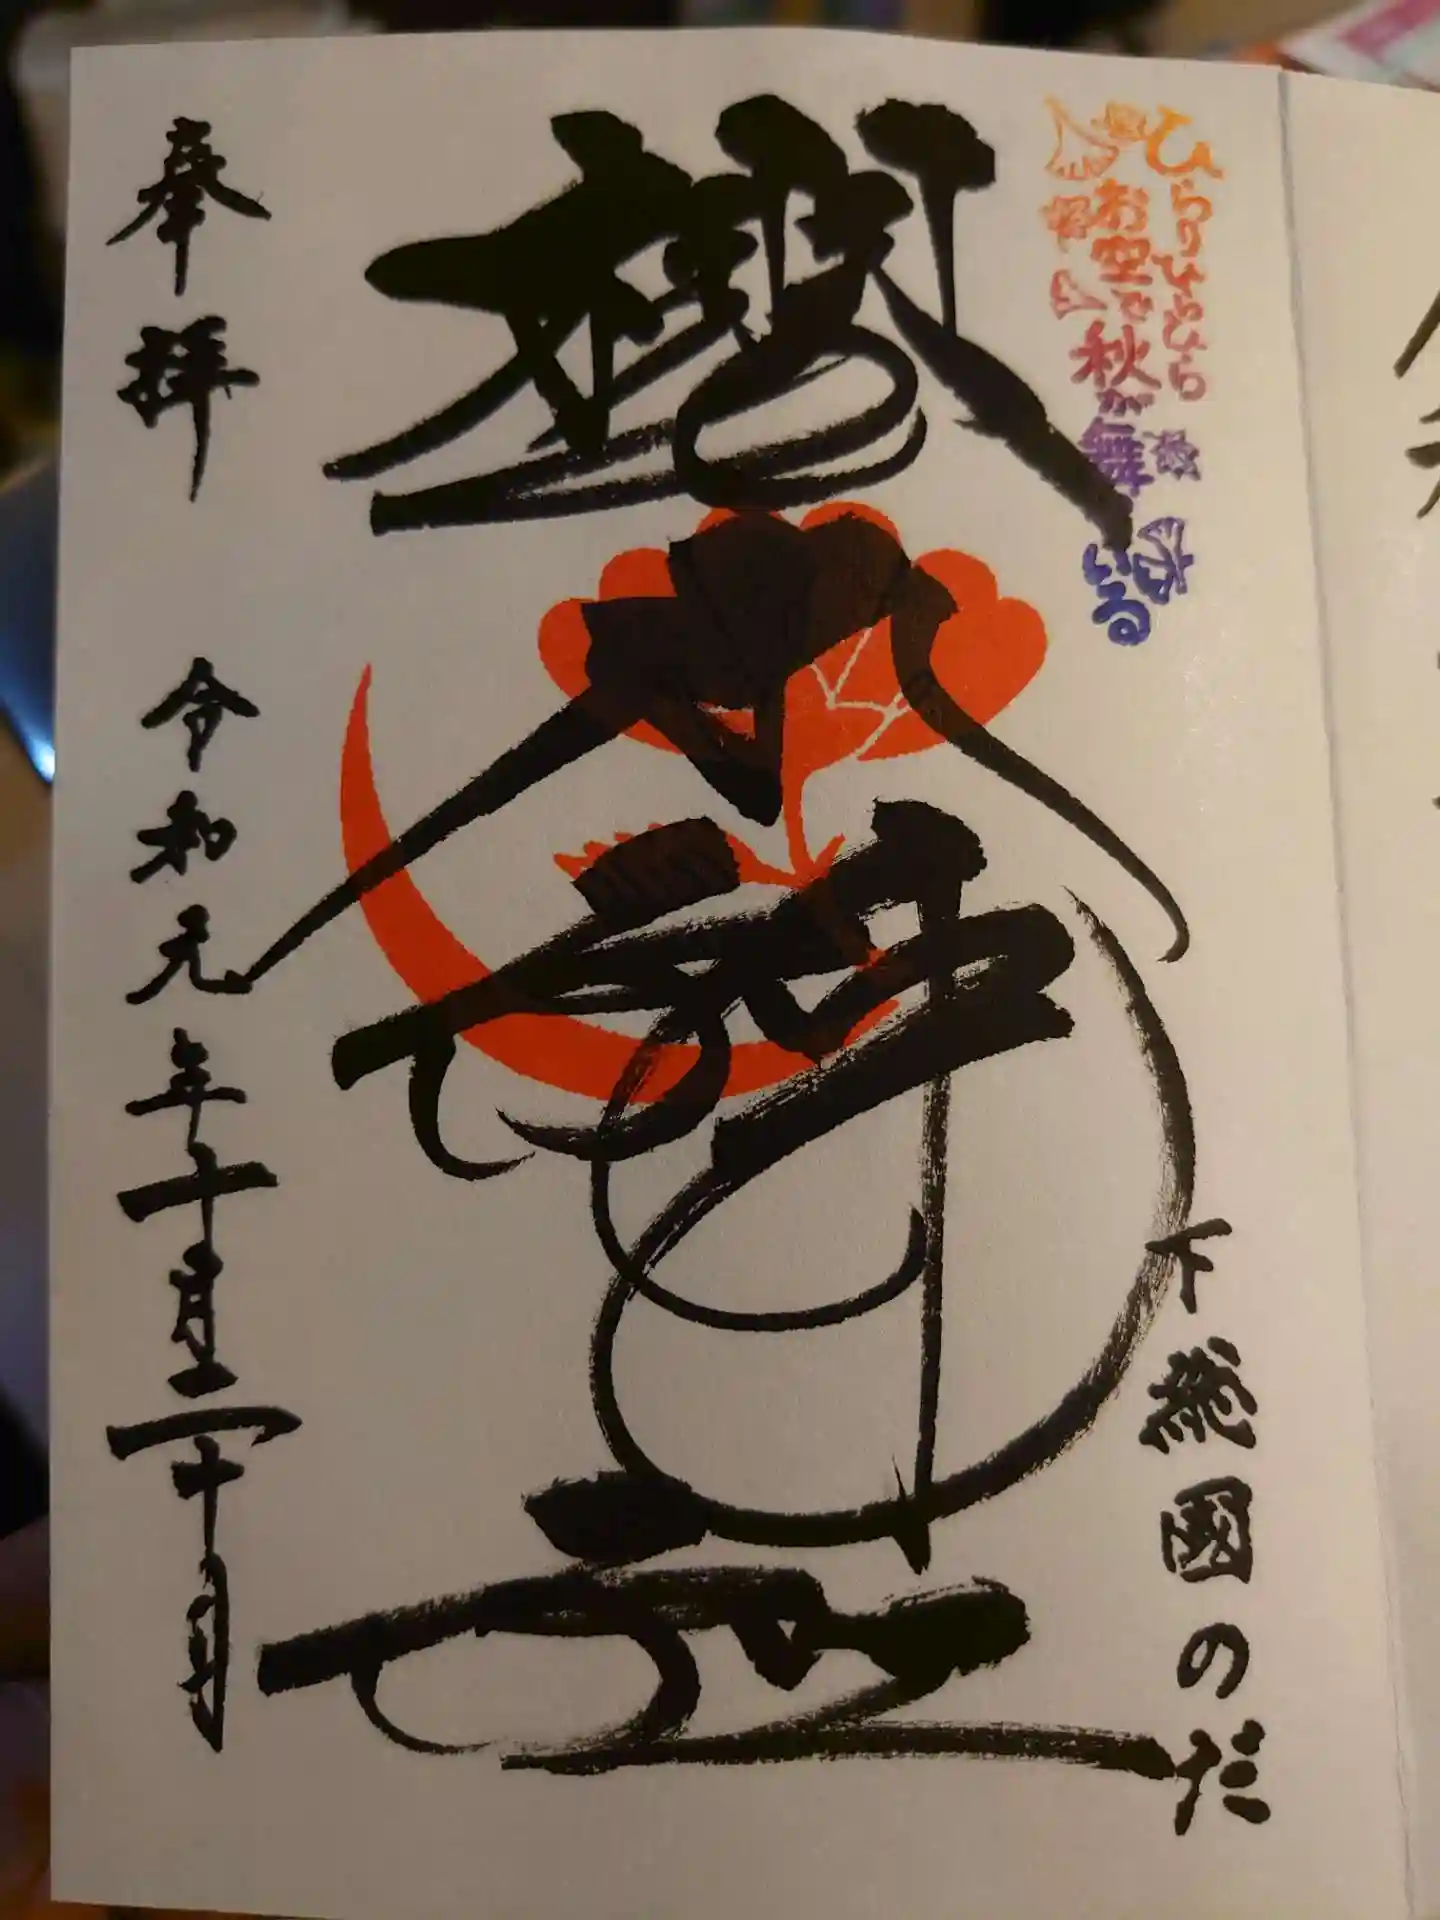 ひらりひらひら
お空で秋が舞
下総國のだ
櫻木神社
奉拝 令和元年十月二十日